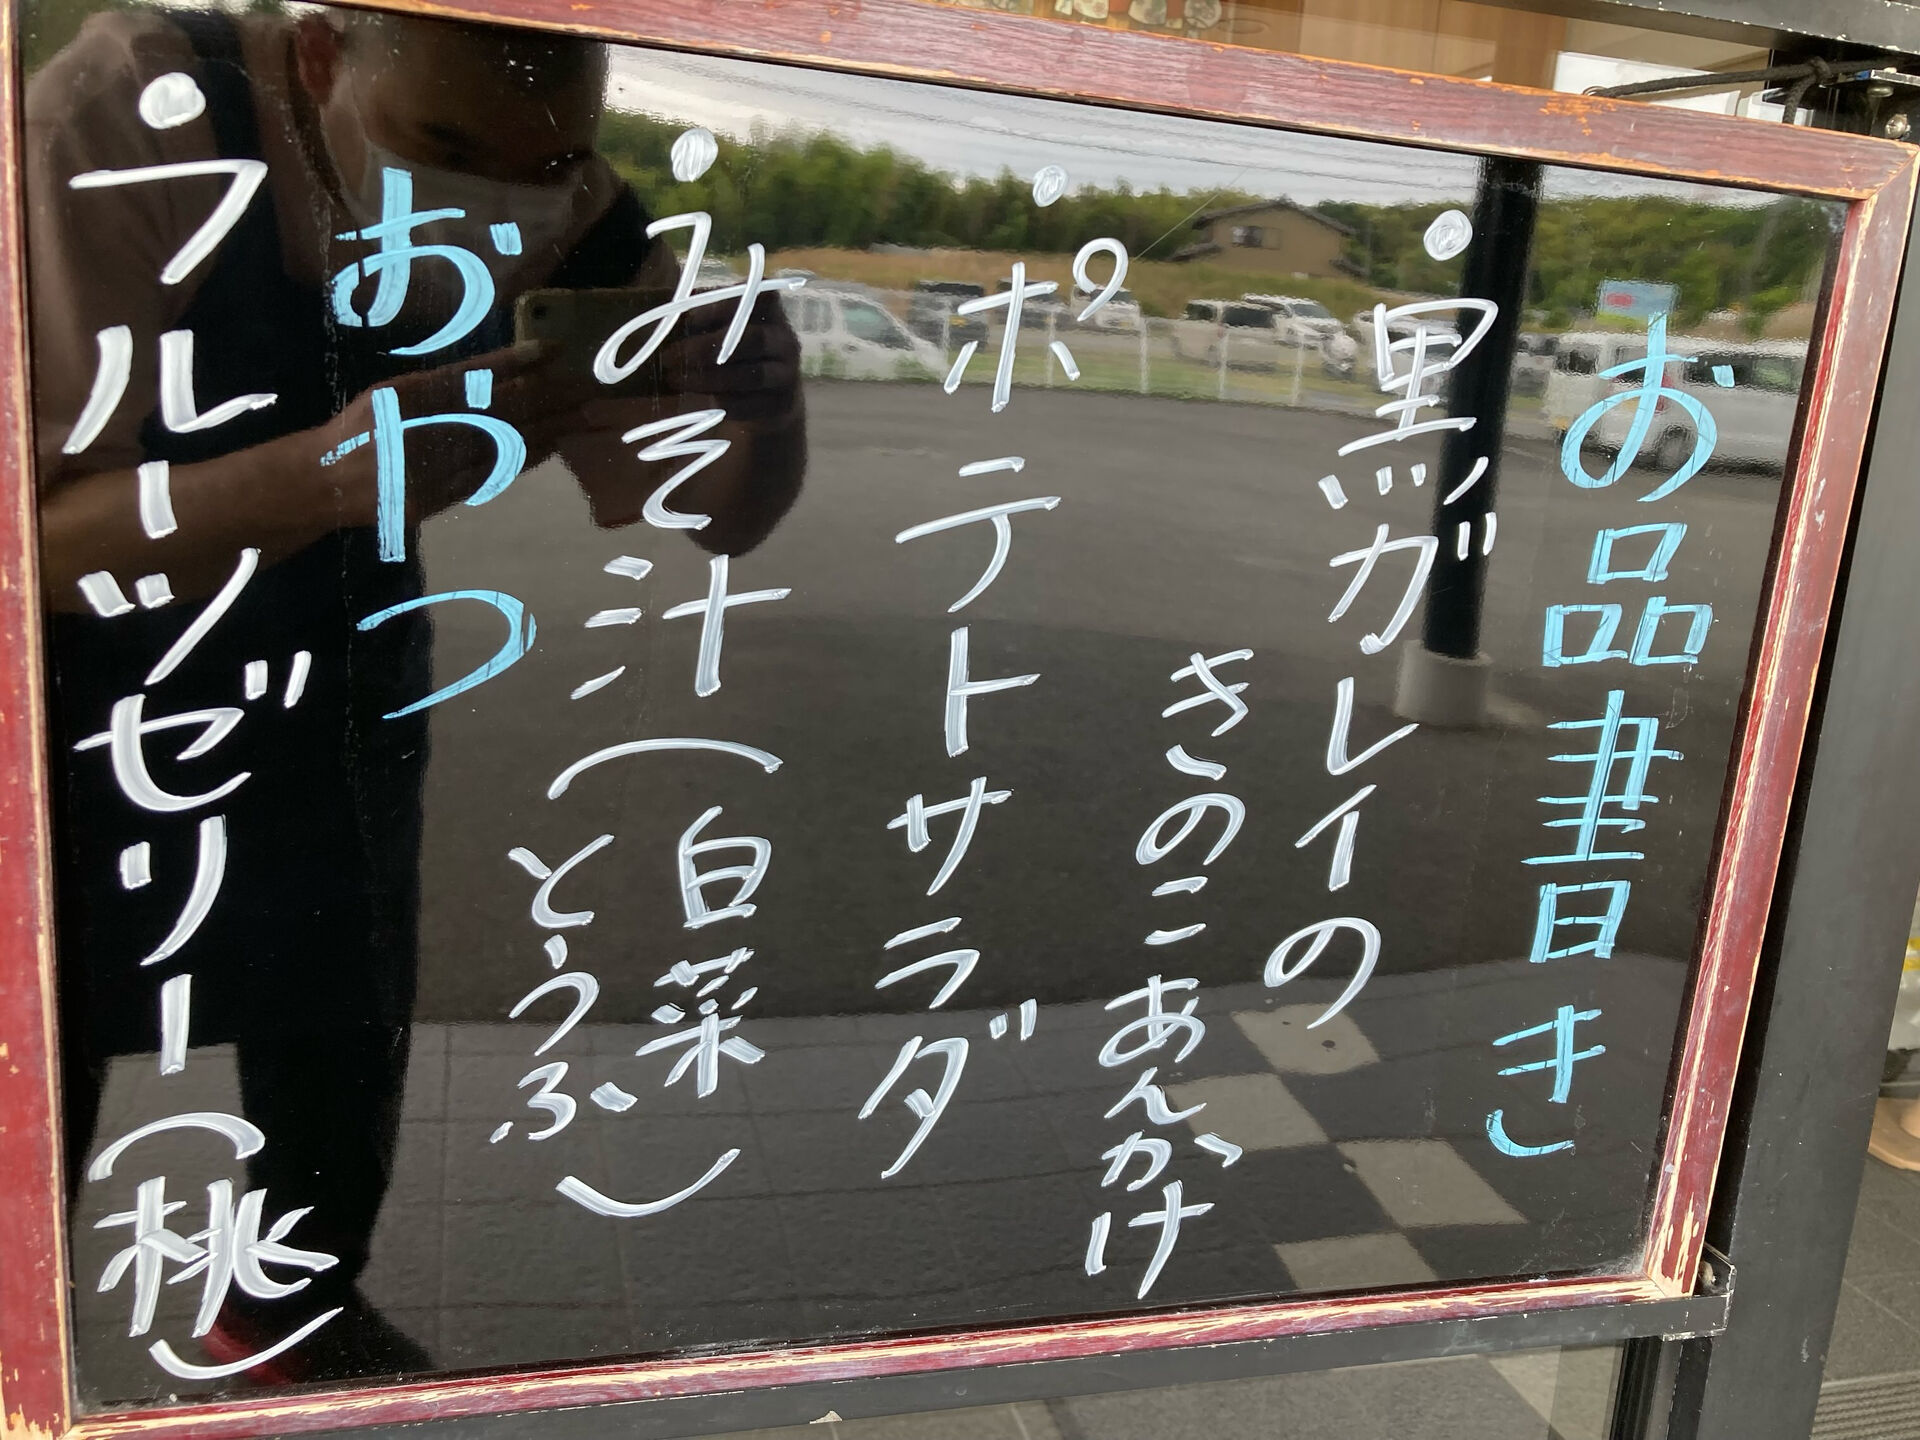 お品書き
・黒ガレイの
きのこあんかけ
・ポテトサラダ
・みそ汁(白菜
とうふ)
おやつ
・フルーツゼリー(桃)